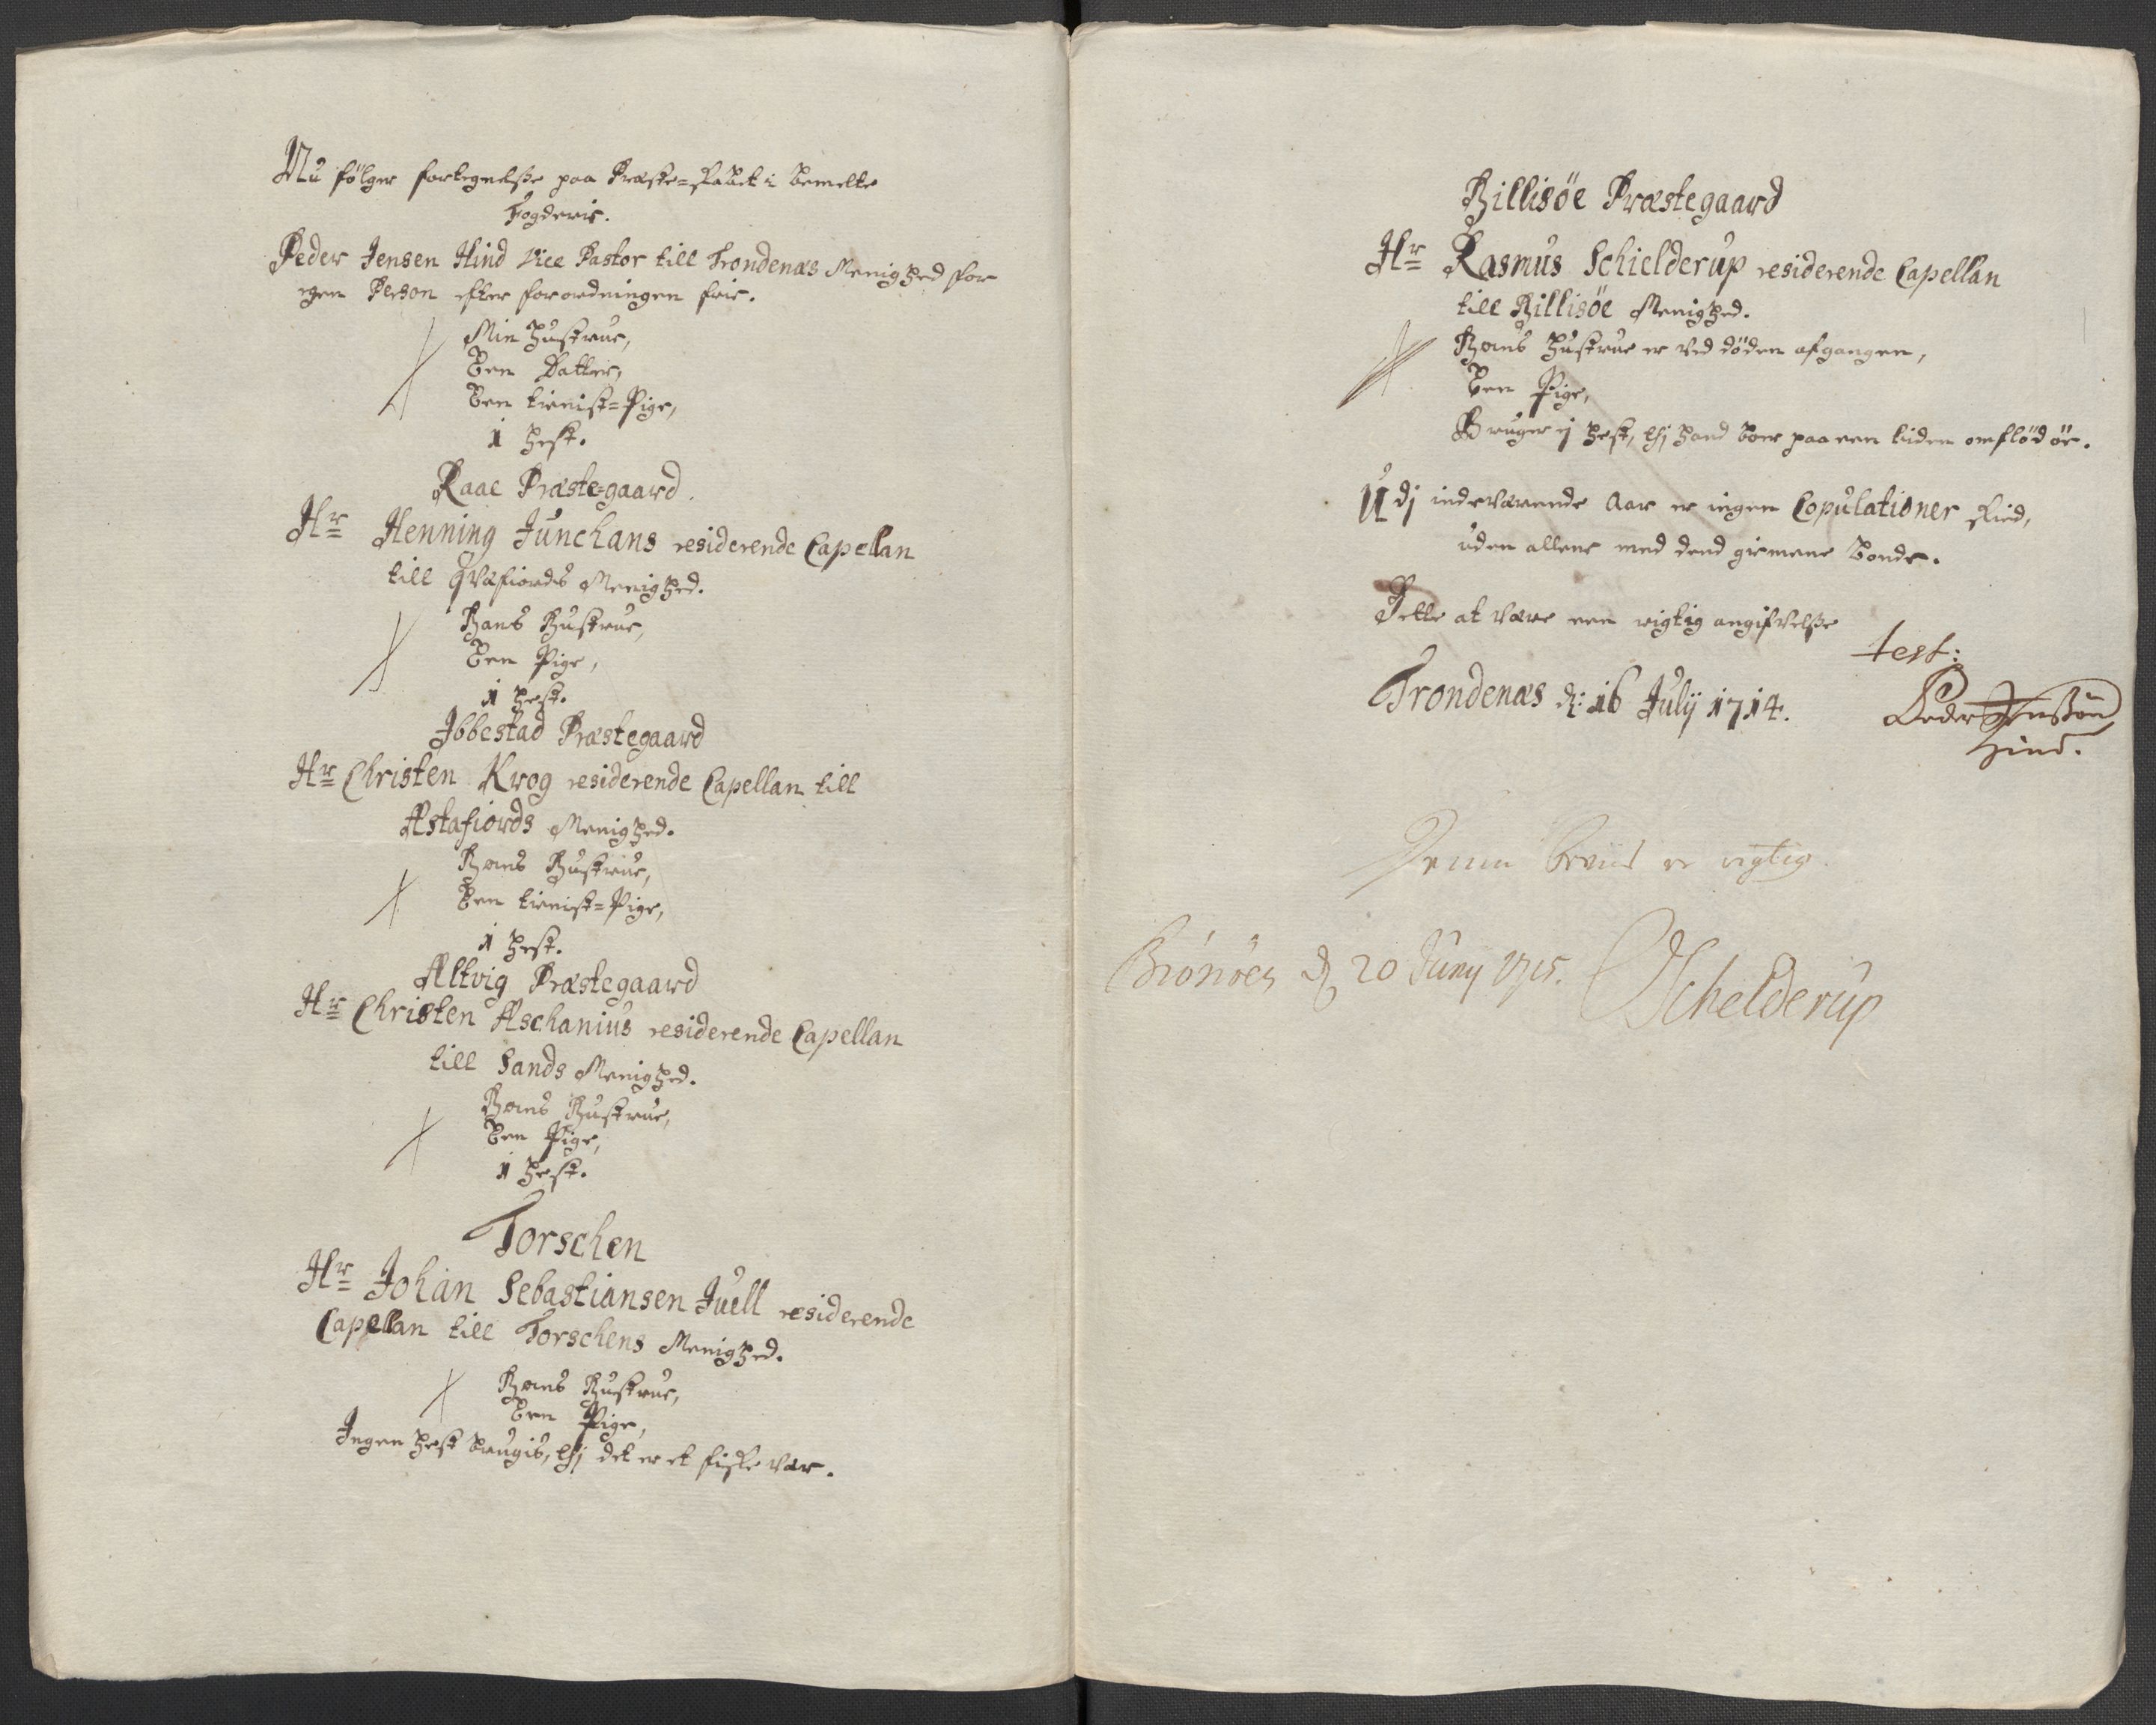 Nu følger fortegnelsse paa Præste-skabet i bemelte
Fogderie.
Peder Jensen Hind Vice Pastor till Trondenæs Menighed for
egen Person efter forordningen frie.
Min Hustrue,
Een Datter,
Een tienist-Pige,
1 Hest.
Raae Præste-gaard.
Hr Henning Junchans residerende Capellan
till Qvæfiords Menighed.
Hans Hustrue,
Een Pige,
1 Hest.
Ibbestad Præstegaard
Hr Christen Krog residerende Capellan till
Astafiords Menighed.
Hans Hustrue,
Een tienist-Pige,
1 Hest.
Altvig Præstegaard
Hr Christen Aschanius residerende Capellan
till Sands Menighed.
Hans Hustrue,
Een Pige,
1 Hest.
Torschen
Hr Johan Sebastiansen Juell residerende
Capellan till Torschens Menighed.
Hans Hustrue,
Een Pige,
Ingen Hest brugis, thj det er et fiske vær.
Hillisöe Præstegaard
Hr Rasmus Schielderup residerende Capellan
till Hillisöe Menighed.
Hans Hustrue er ved döden afgangen,
Een Pige,
Bruger ej Hest, thj hand boer paa een liden omflöd öe.
Udj indeværende Aar er ingen Copulationer skied,
uden allene med dend gemene bonde.
Dette at være een rigtig angifvelsse
test:
Trondenæs d: 16 Julij 1714.
Peder Jenssön
Hind.
Denne beviis er rigtig.
Brönöes d 20 Junij 1715.
Schelderup